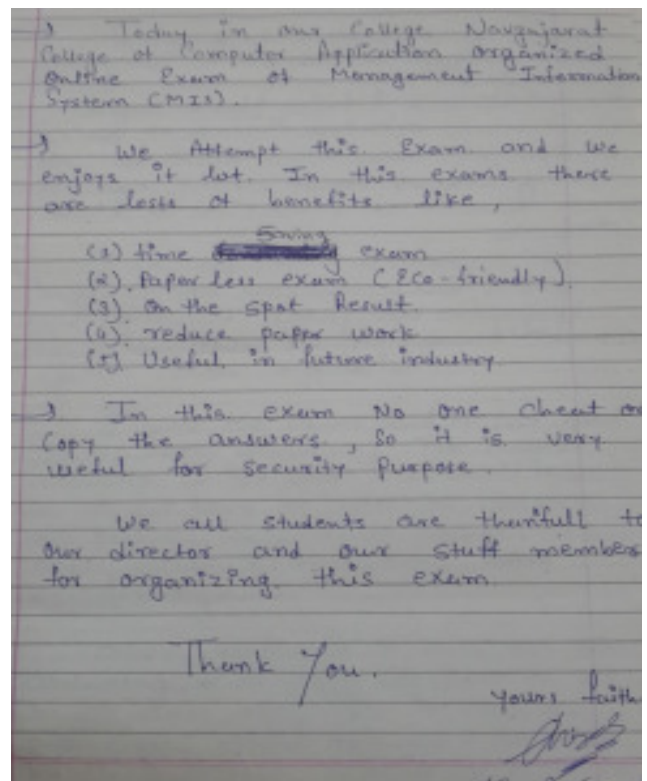 → Today in our College Navgujarat
College of Computer Application organized
Online Exam of Menagement Information
System (MIS).
→ We Attempt this Exam and we
enjoys it lot. In this exams there
are losts of benefits like,
(1) time Saving exam
(2). Paper less exam (Eco-friendly).
(3) on the spot Result.
(4) reduce paper work
(5) Useful in future industry
→ In this exam No one cheat or
Copy the answers, So it is very
useful for security Purpose.
We all students are thankfull to
our director and our stuff members
for organizing this exam
Thank You.
Yours faith